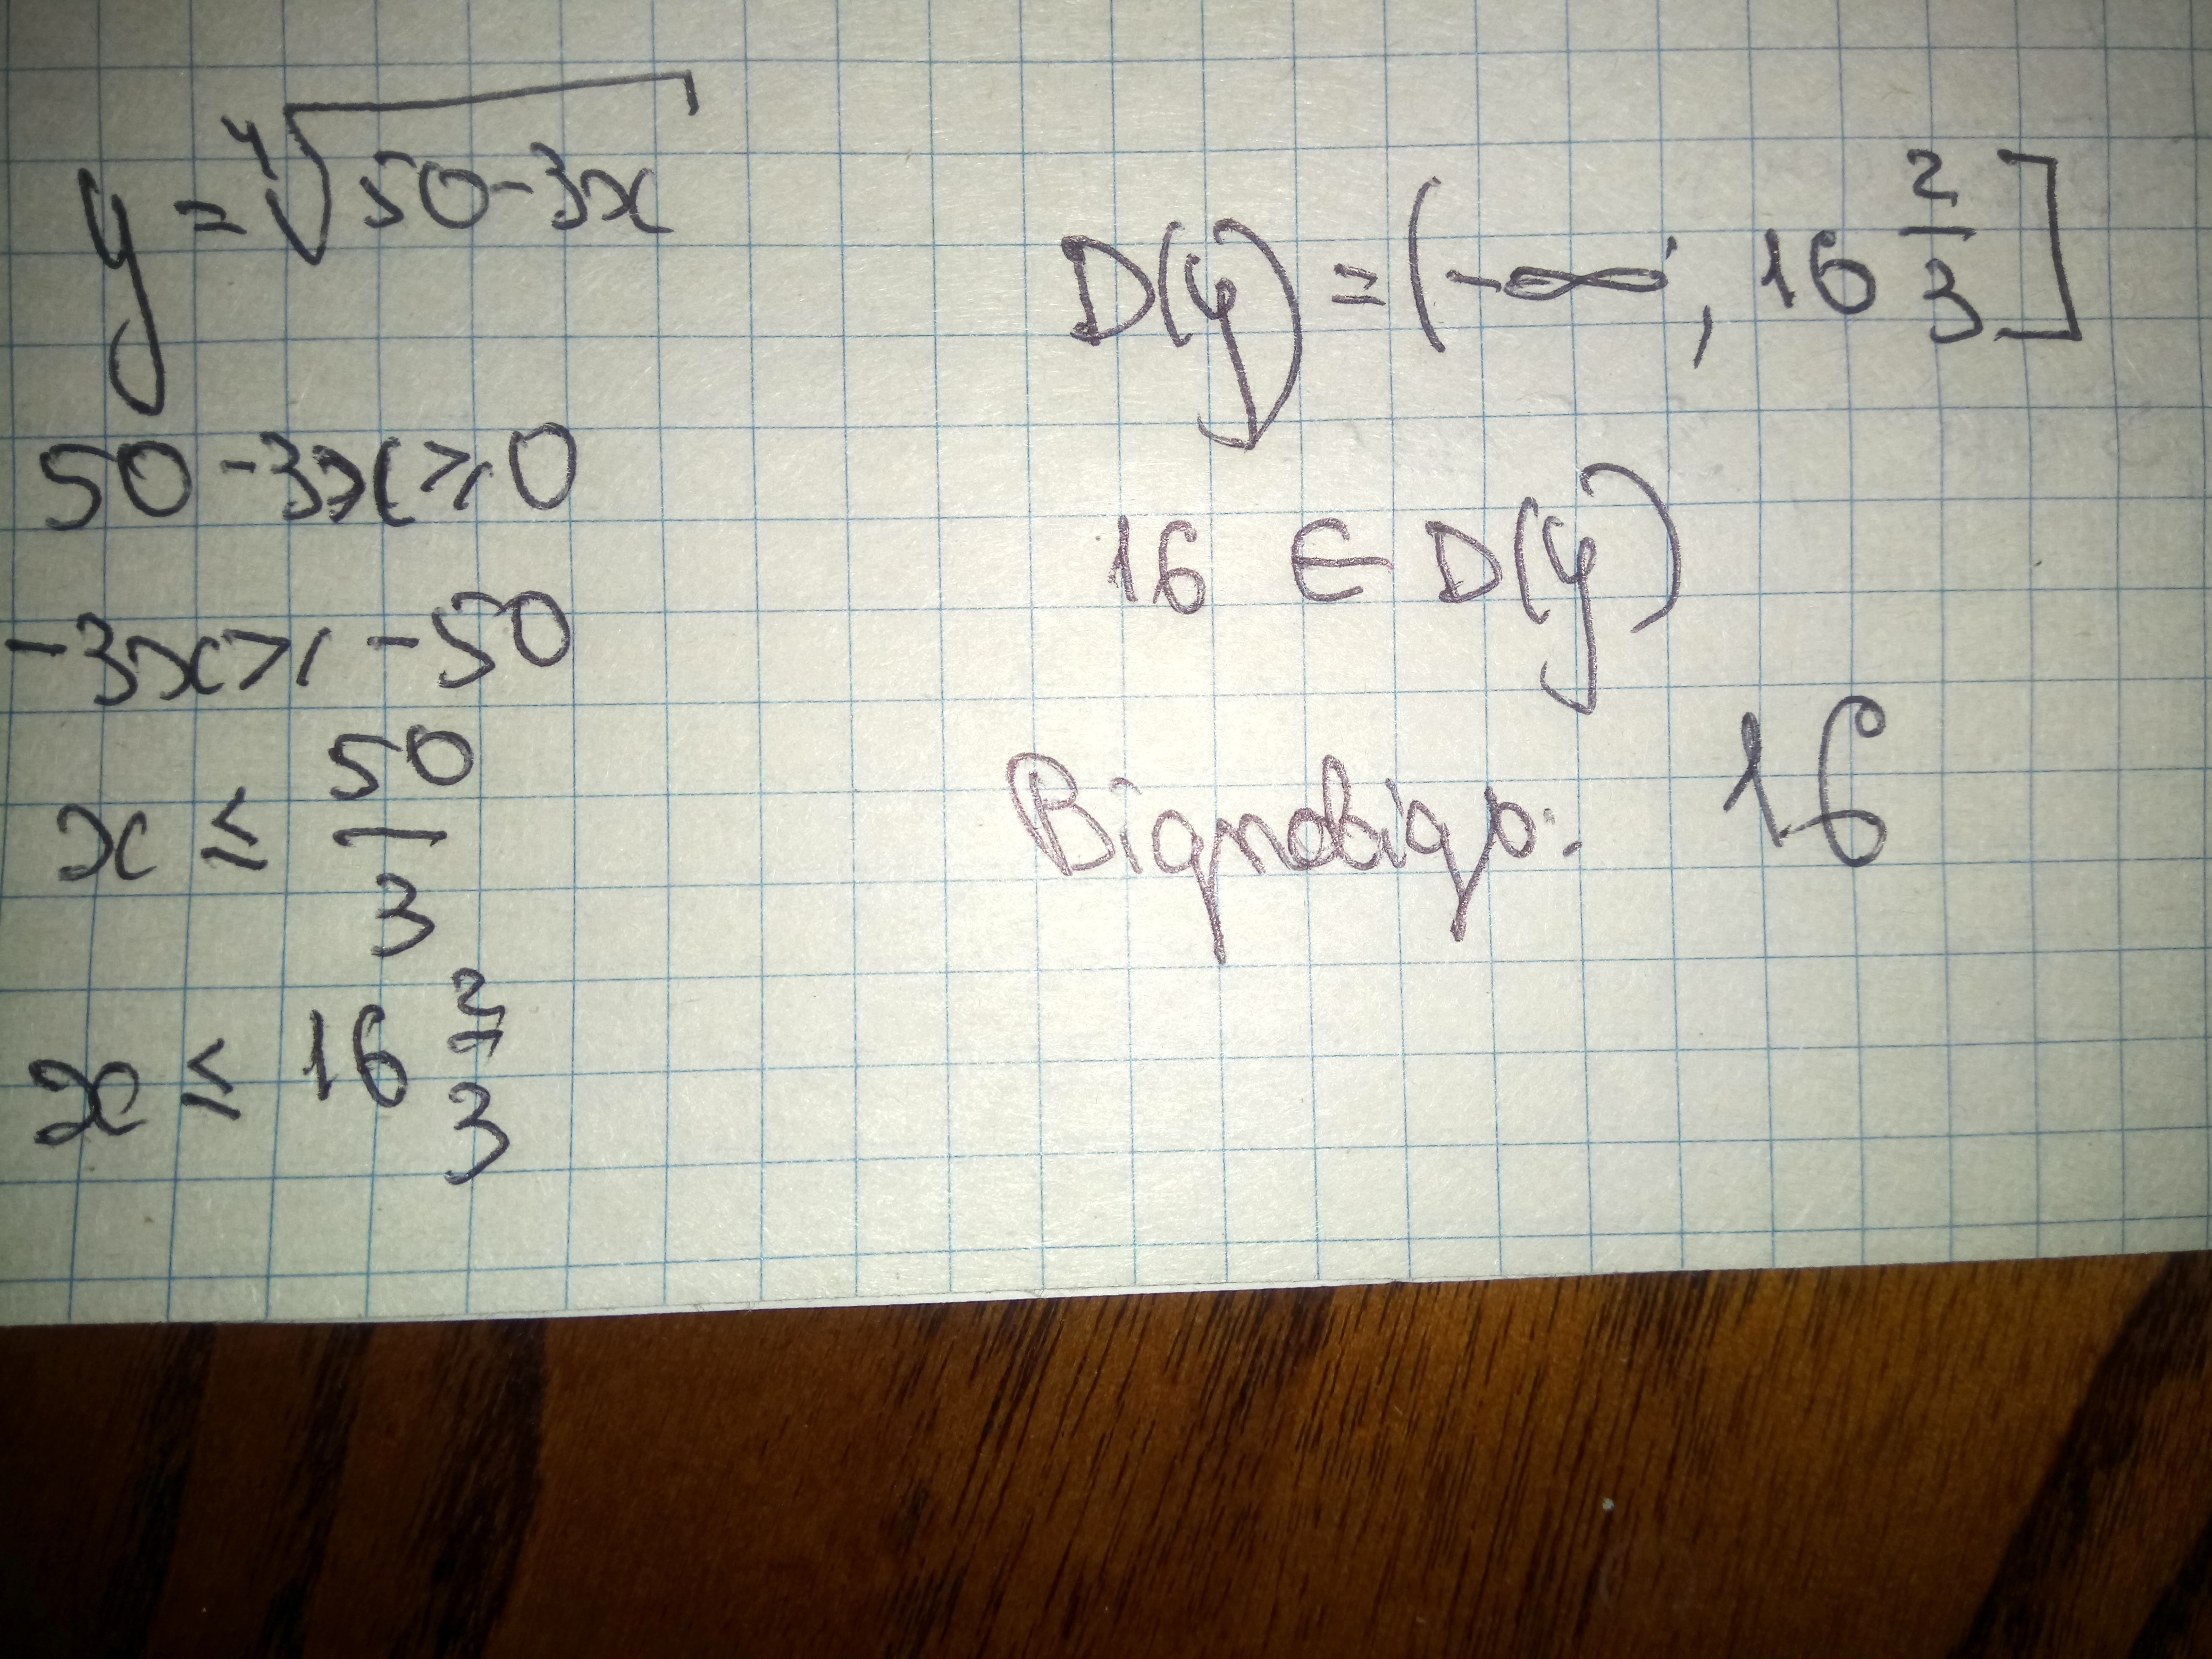 y = ⁴√(50-3x)
50-3x ≥ 0
-3x ≥ -50
x ≤ 50/3
x ≤ 16 2/3
D(y) = (-∞, 16 2/3]
16 ∈ D(y)
Відповідь: 16